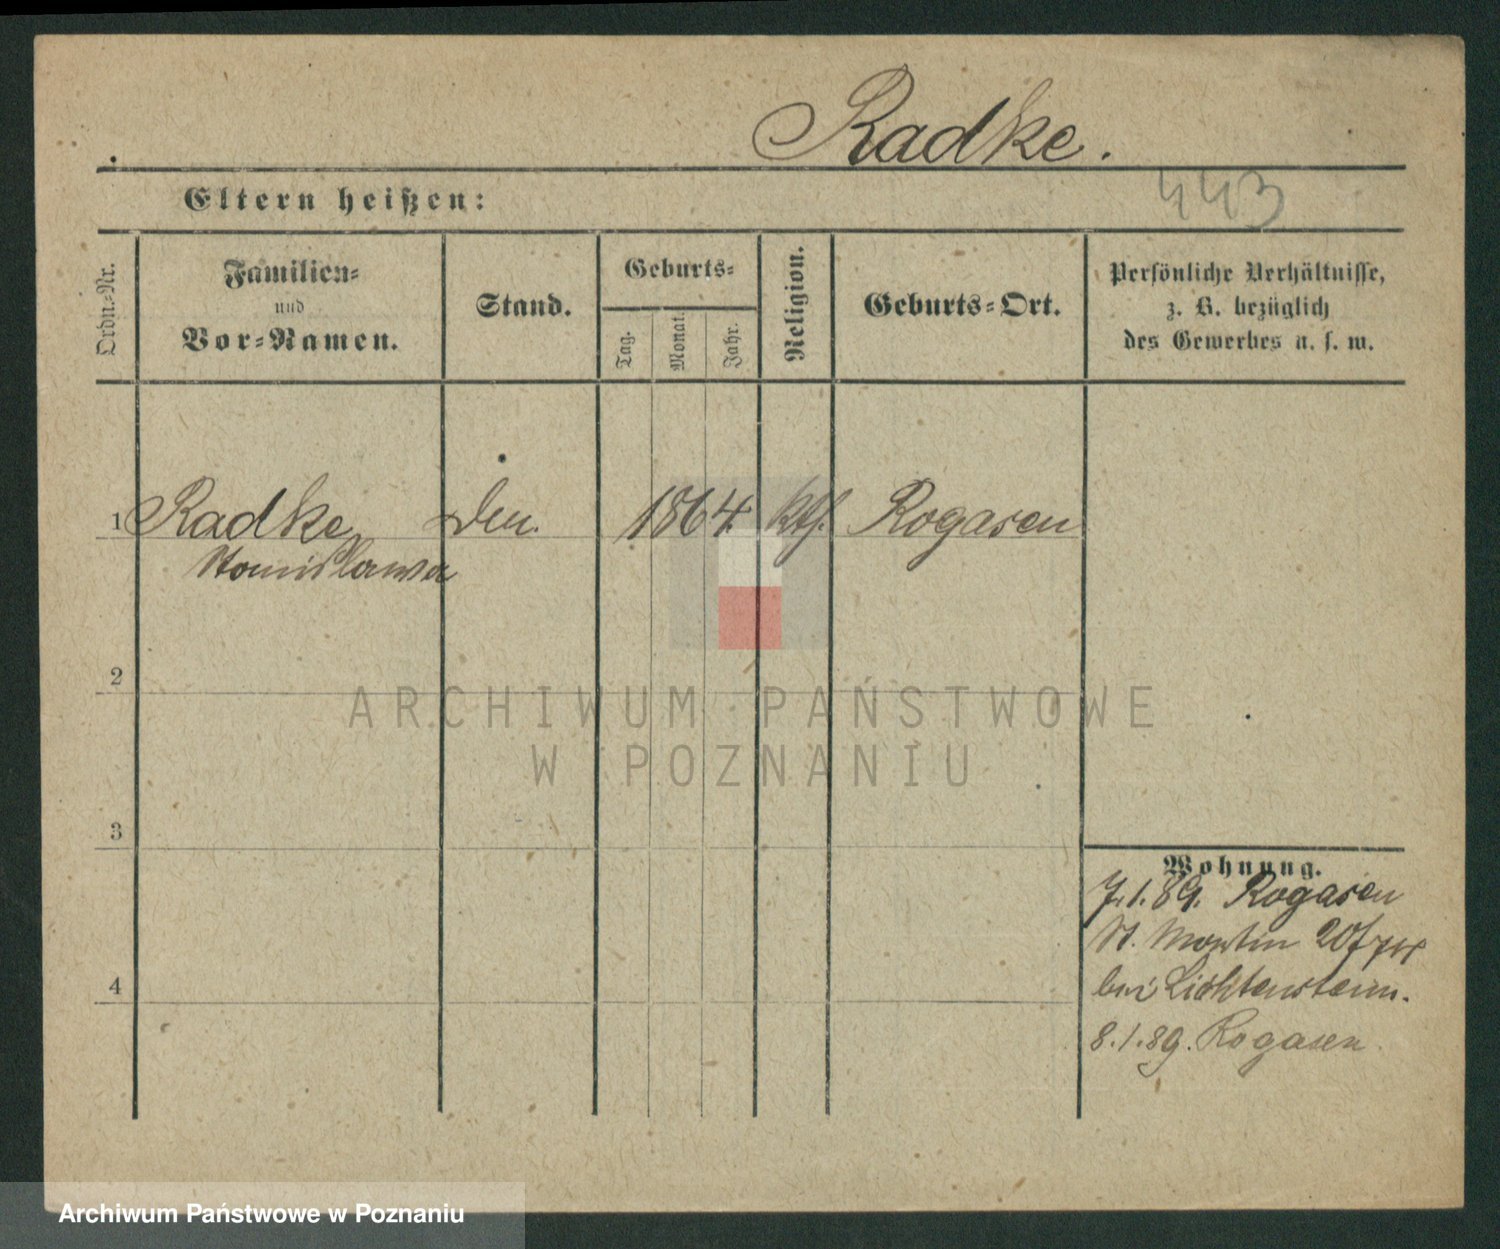 Radke.
Eltern heißen:
443
Ordn.-Nr.
Familien-
und
Vor-Namen.
Stand.
Geburts-
Tag.
Monat.
Jahr.
Religion.
Geburts-Ort.
Persönliche Verhältnisse,
z. B. bezüglich
des Gewerbes u. s. w.
1 Radke 1864. kth. Rogasen
Stanislawa
2
ARCHIWUM PAŃSTWOWE
W POZNANIU
3
Wohnung.
7.1.89. Rogasen
St. Martin 20
4
bei Lichtenstein.
8.1.89. Rogasen
Archiwum Państwowe w Poznaniu